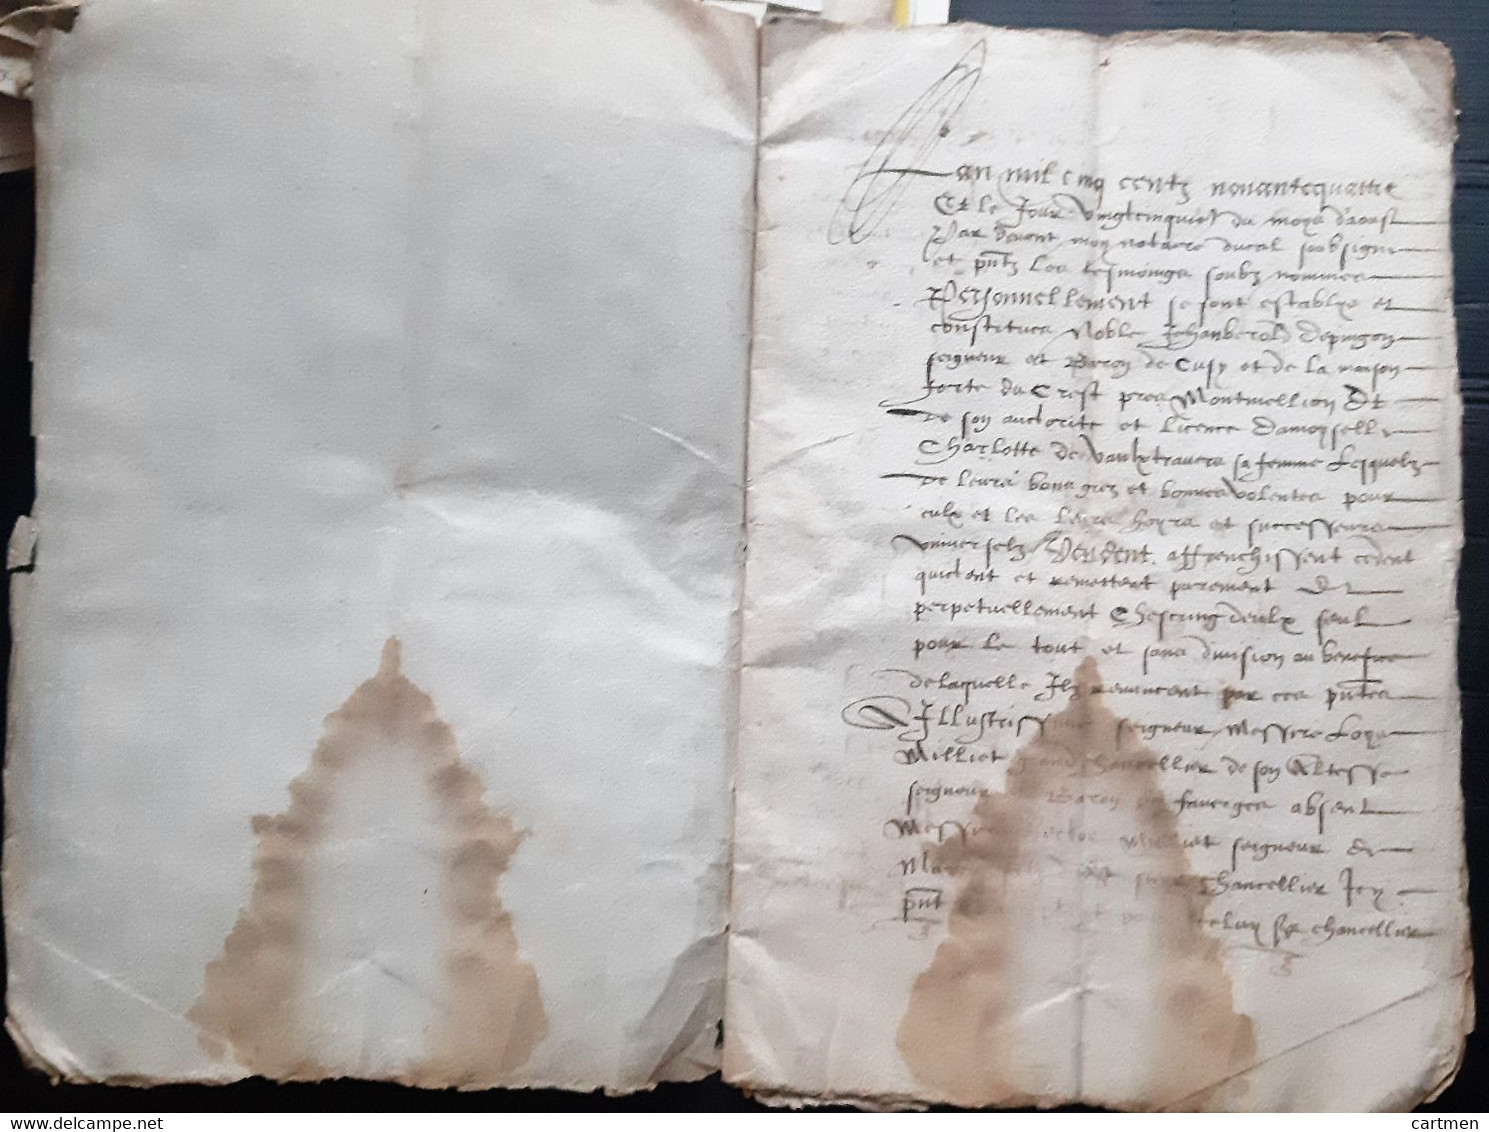 Lan mil cinq centz nonantequattre
Et le Jour vingtcinquies du moys daoust
Par devant moy notaire ducal soubsigne
et pntz les tesmoings soubz nommes
Personnellement se sont establys et
constitues Noble Jehan
seigneur et Baron de Cusy et de la maison
forte du Crest pres Montmellion Et
de son auctorite et licence damoyselle
Charlotte de Vaulxtravers sa femme Lesquelz
de leurs bons grez et bonnes volentes pour
eulx et les leurs hoyrs et successeurs
universelz Vendent affranchissent cedent
quictent et remettent purement Et
perpetuellement Chescung deulx seul
pour le tout et sans division au benefice
de laquelle Ilz renuncent par ces pntes
A Illustrissime seigneur Messire Loys
Milliet grand chancellier de son Altesse
seigneur et Baron de faverges absent
Messire Milliet seigneur de
chancellier Icy
pnt celuy sgr chancellier
delcampe.net
cartmen